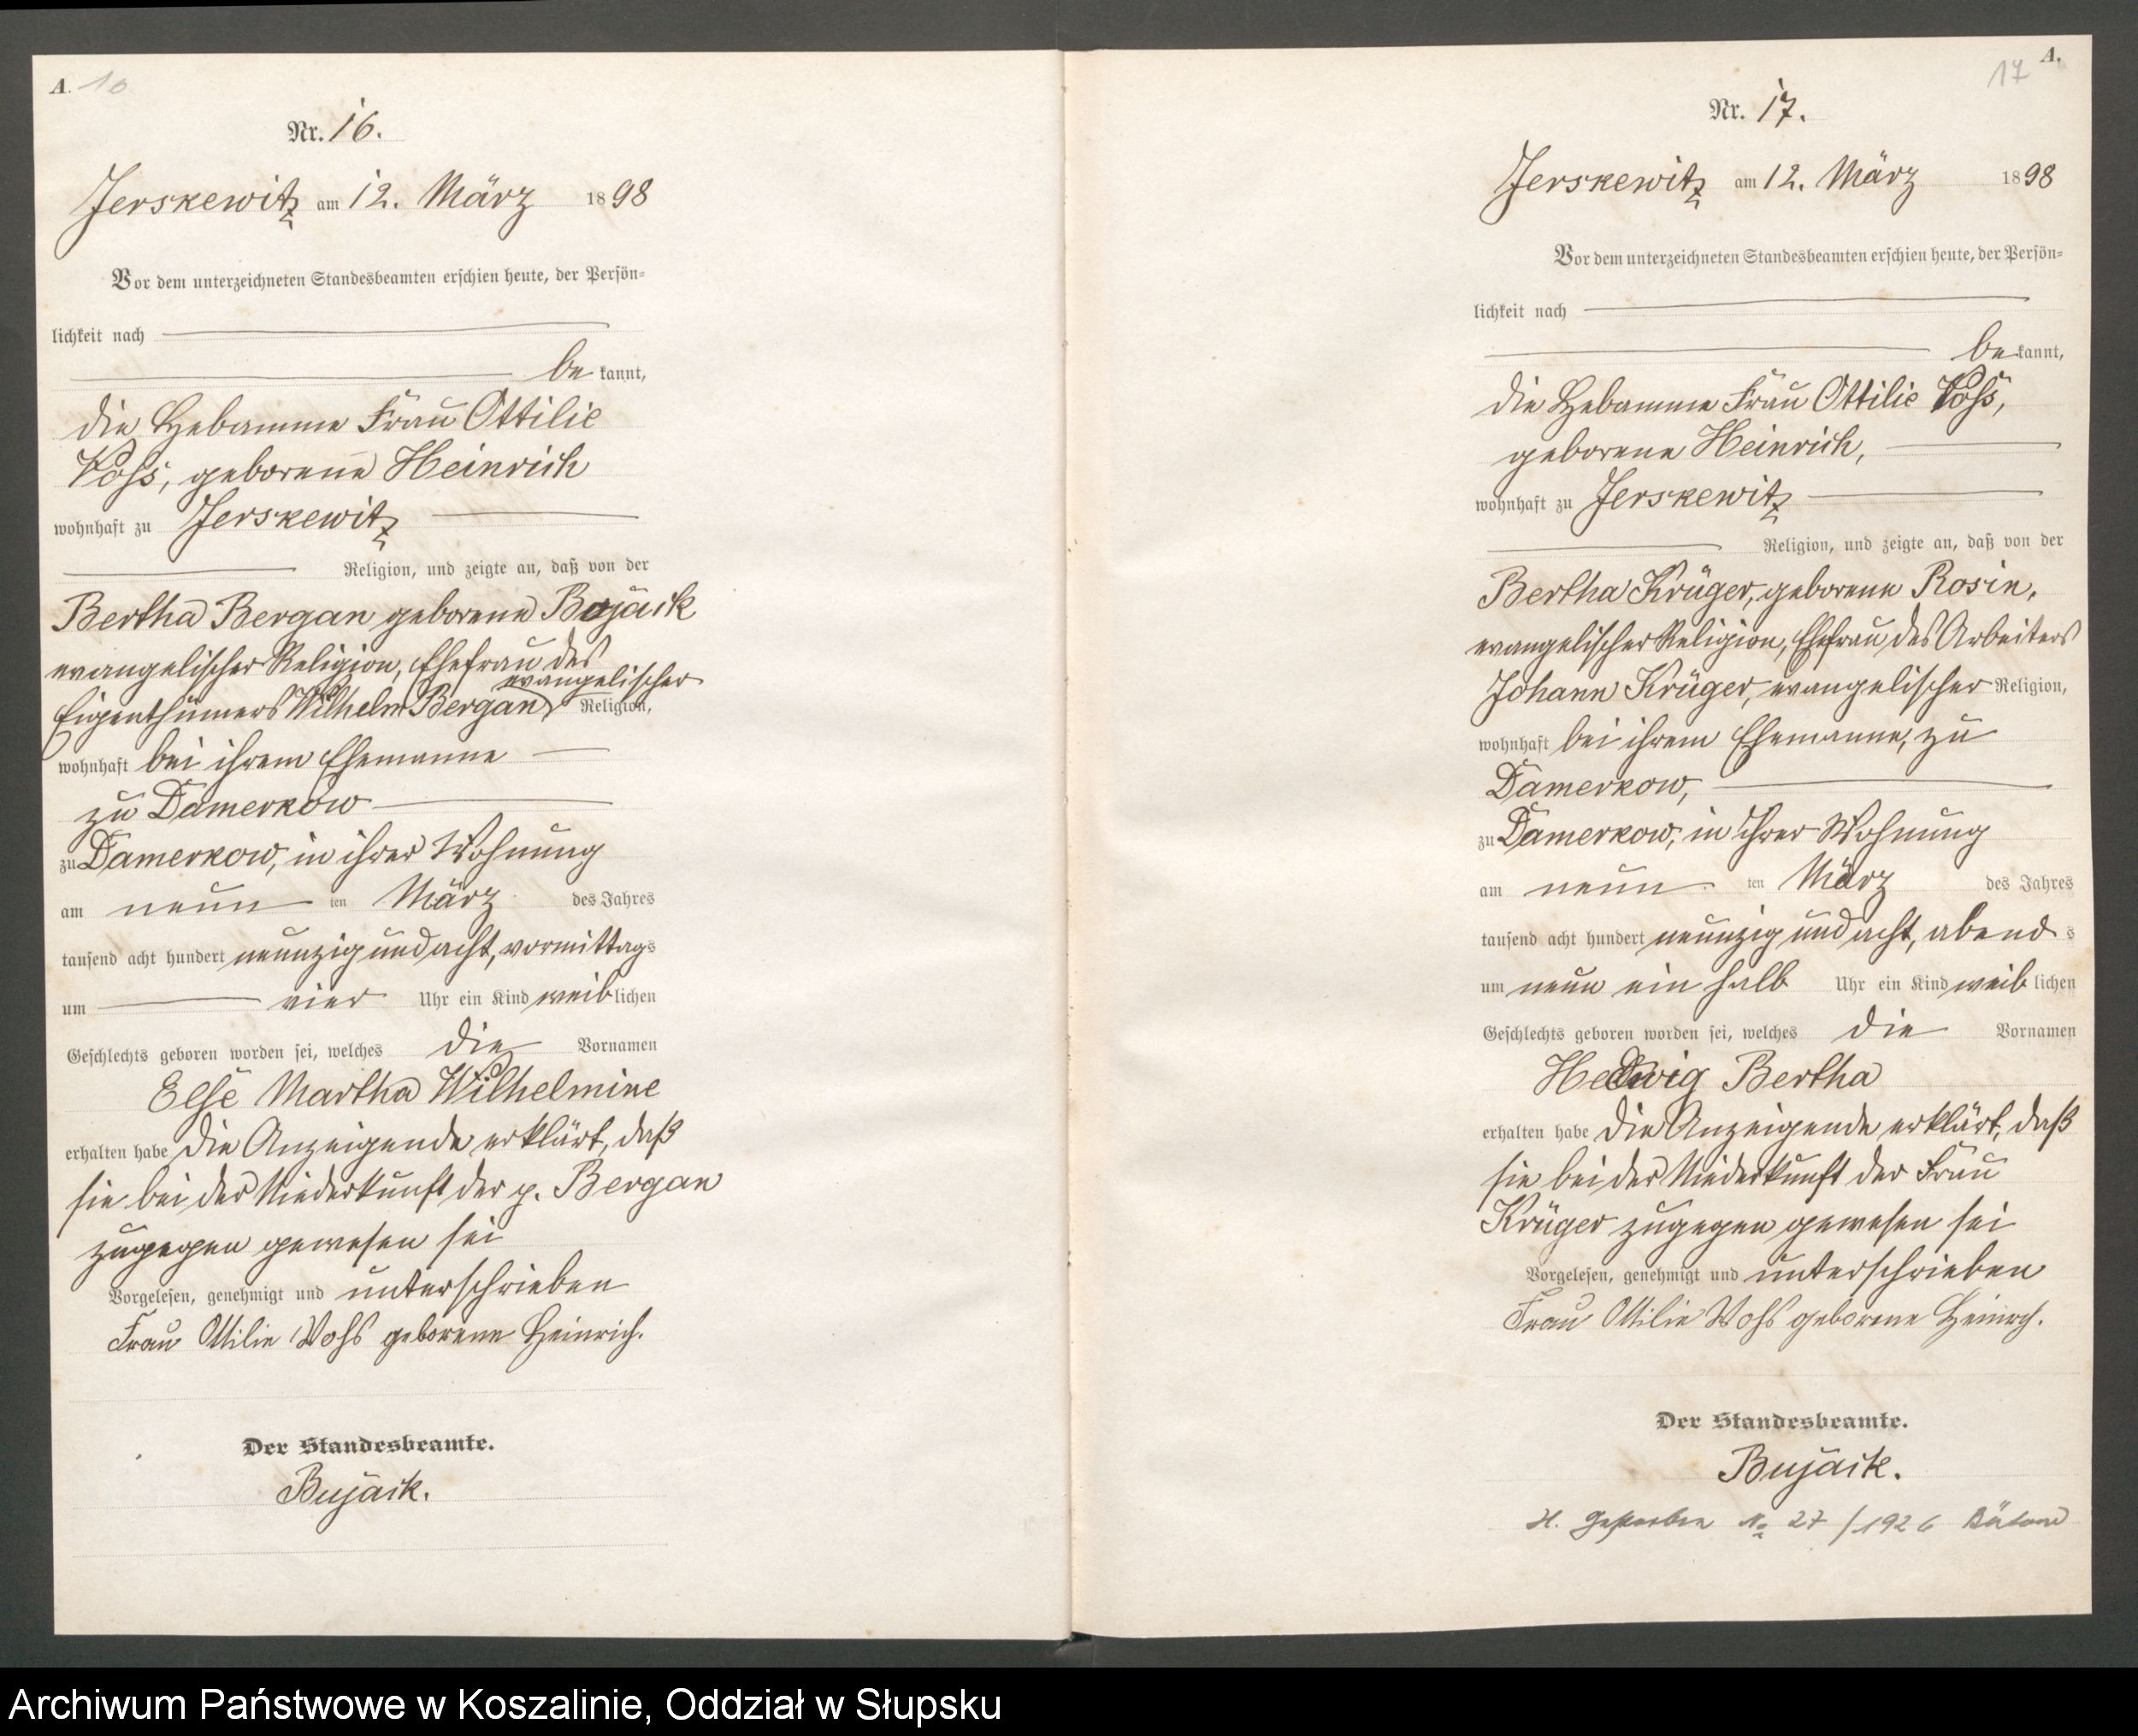 A. 10
Nr. 16.
Jerskewitz am 12. März 1898
Vor dem unterzeichneten Standesbeamten erschien heute, der Persön-
lichkeit nach
bekannt,
die Hebamme Frau Ottilie
Voss, geborene Heinrich
wohnhaft zu Jerskewitz
Religion, und zeigte an, daß von der
Bertha Bergan geborene Bojack
evangelischer Religion, Ehefrau des
evangelischer
Eigenthümers Wilhelm Bergan, Religion,
wohnhaft bei ihrem Ehemanne
zu Damerkow
zu Damerkow, in ihrer Wohnung
am neun ten März des Jahres
tausend acht hundert neunzig und acht, vormittags
um vier Uhr ein Kind weiblichen
Geschlechts geboren worden sei, welches die Vornamen
Else Martha Wilhelmine
erhalten habe die Anzeigende erklärt, daß
sie bei der Niederkunft der p. Bergan
zugegen gewesen sei
Vorgelesen, genehmigt und unterschrieben
Frau Ottilie Vohs geborene Heinrich.
Der Standesbeamte.
Bujack.
17 A.
Nr. 17.
Jerskewitz am 12. März 1898
Vor dem unterzeichneten Standesbeamten erschien heute, der Persön-
lichkeit nach
bekannt,
die Hebamme Frau Ottilie Voss,
geborene Heinrich,
wohnhaft zu Jerskewitz
Religion, und zeigte an, daß von der
Bertha Krüger, geborene Rosin,
evangelischer Religion, Ehefrau des Arbeiters
Johann Krüger, evangelischer Religion,
wohnhaft bei ihrem Ehemanne, zu
Damerkow,
zu Damerkow, in ihrer Wohnung
am neun ten März des Jahres
tausend acht hundert neunzig und acht, abends
um neun ein halb Uhr ein Kind weiblichen
Geschlechts geboren worden sei, welches die Vornamen
Hedwig Bertha
erhalten habe die Anzeigende erklärt, daß
sie bei der Niederkunft der Frau
Krüger zugegen gewesen sei
Vorgelesen, genehmigt und unterschrieben
Frau Ottilie Vohs geborene Heinrch.
Der Standesbeamte.
Bujack.
H. Gestorben No 27/1926 Bütow
Archiwum Państwowe w Koszalinie, Oddział w Słupsku